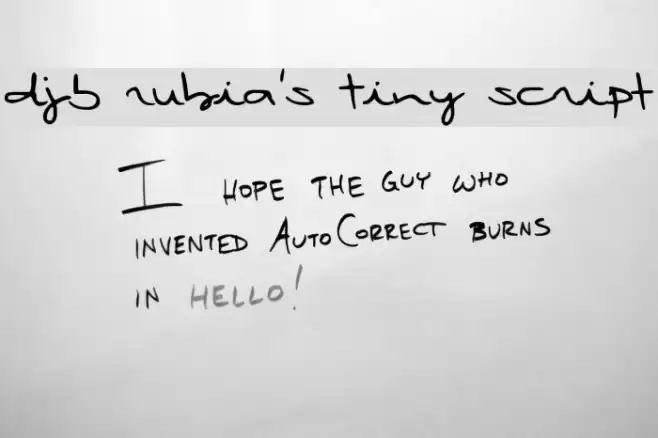 djb rubia's tiny script
I HOPE THE GUY WHO
INVENTED AUTOCORRECT BURNS
IN HELLO!